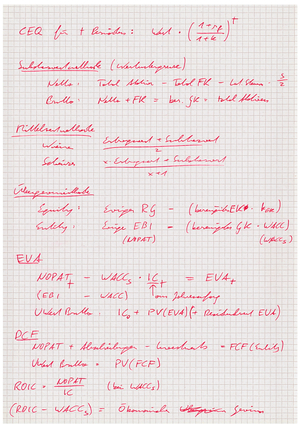 CEQ für t Perioden: Wert · (1+rf / 1+k)^t
Substanzmethode (Wertuntergrenze)
Netto: Total Aktiven - Total FK - Lat. Steuern · S/2
Brutto: Netto + FK = ber. GK = total Aktiven
Mittelwertmethode
Wiener Ertragswert + Substanzwert / 2
Schweizer x · Ertragswert + Substanzwert / x+1
Übergewinnmethode
Equity: Ewiger RG - (bereinigtes EK · kEK)
Entity: Ewige EBI - (bereinigtes GK · WACC)
(NOPAT) (WACCs)
EVA
NOPATt - WACCs · ICt = EVAt
(EBI - WACC) am Jahresanfang
UWert Brutto = IC0 + PV(EVA) (+ Residualwert EVA)
DCF
NOPAT + Abschreibungen - Invest = FCF (Entity)
UWert Brutto = PV(FCF)
ROIC = NOPAT / IC (bei WACCs)
(ROIC - WACCs) = Ökonomischer Gewinn